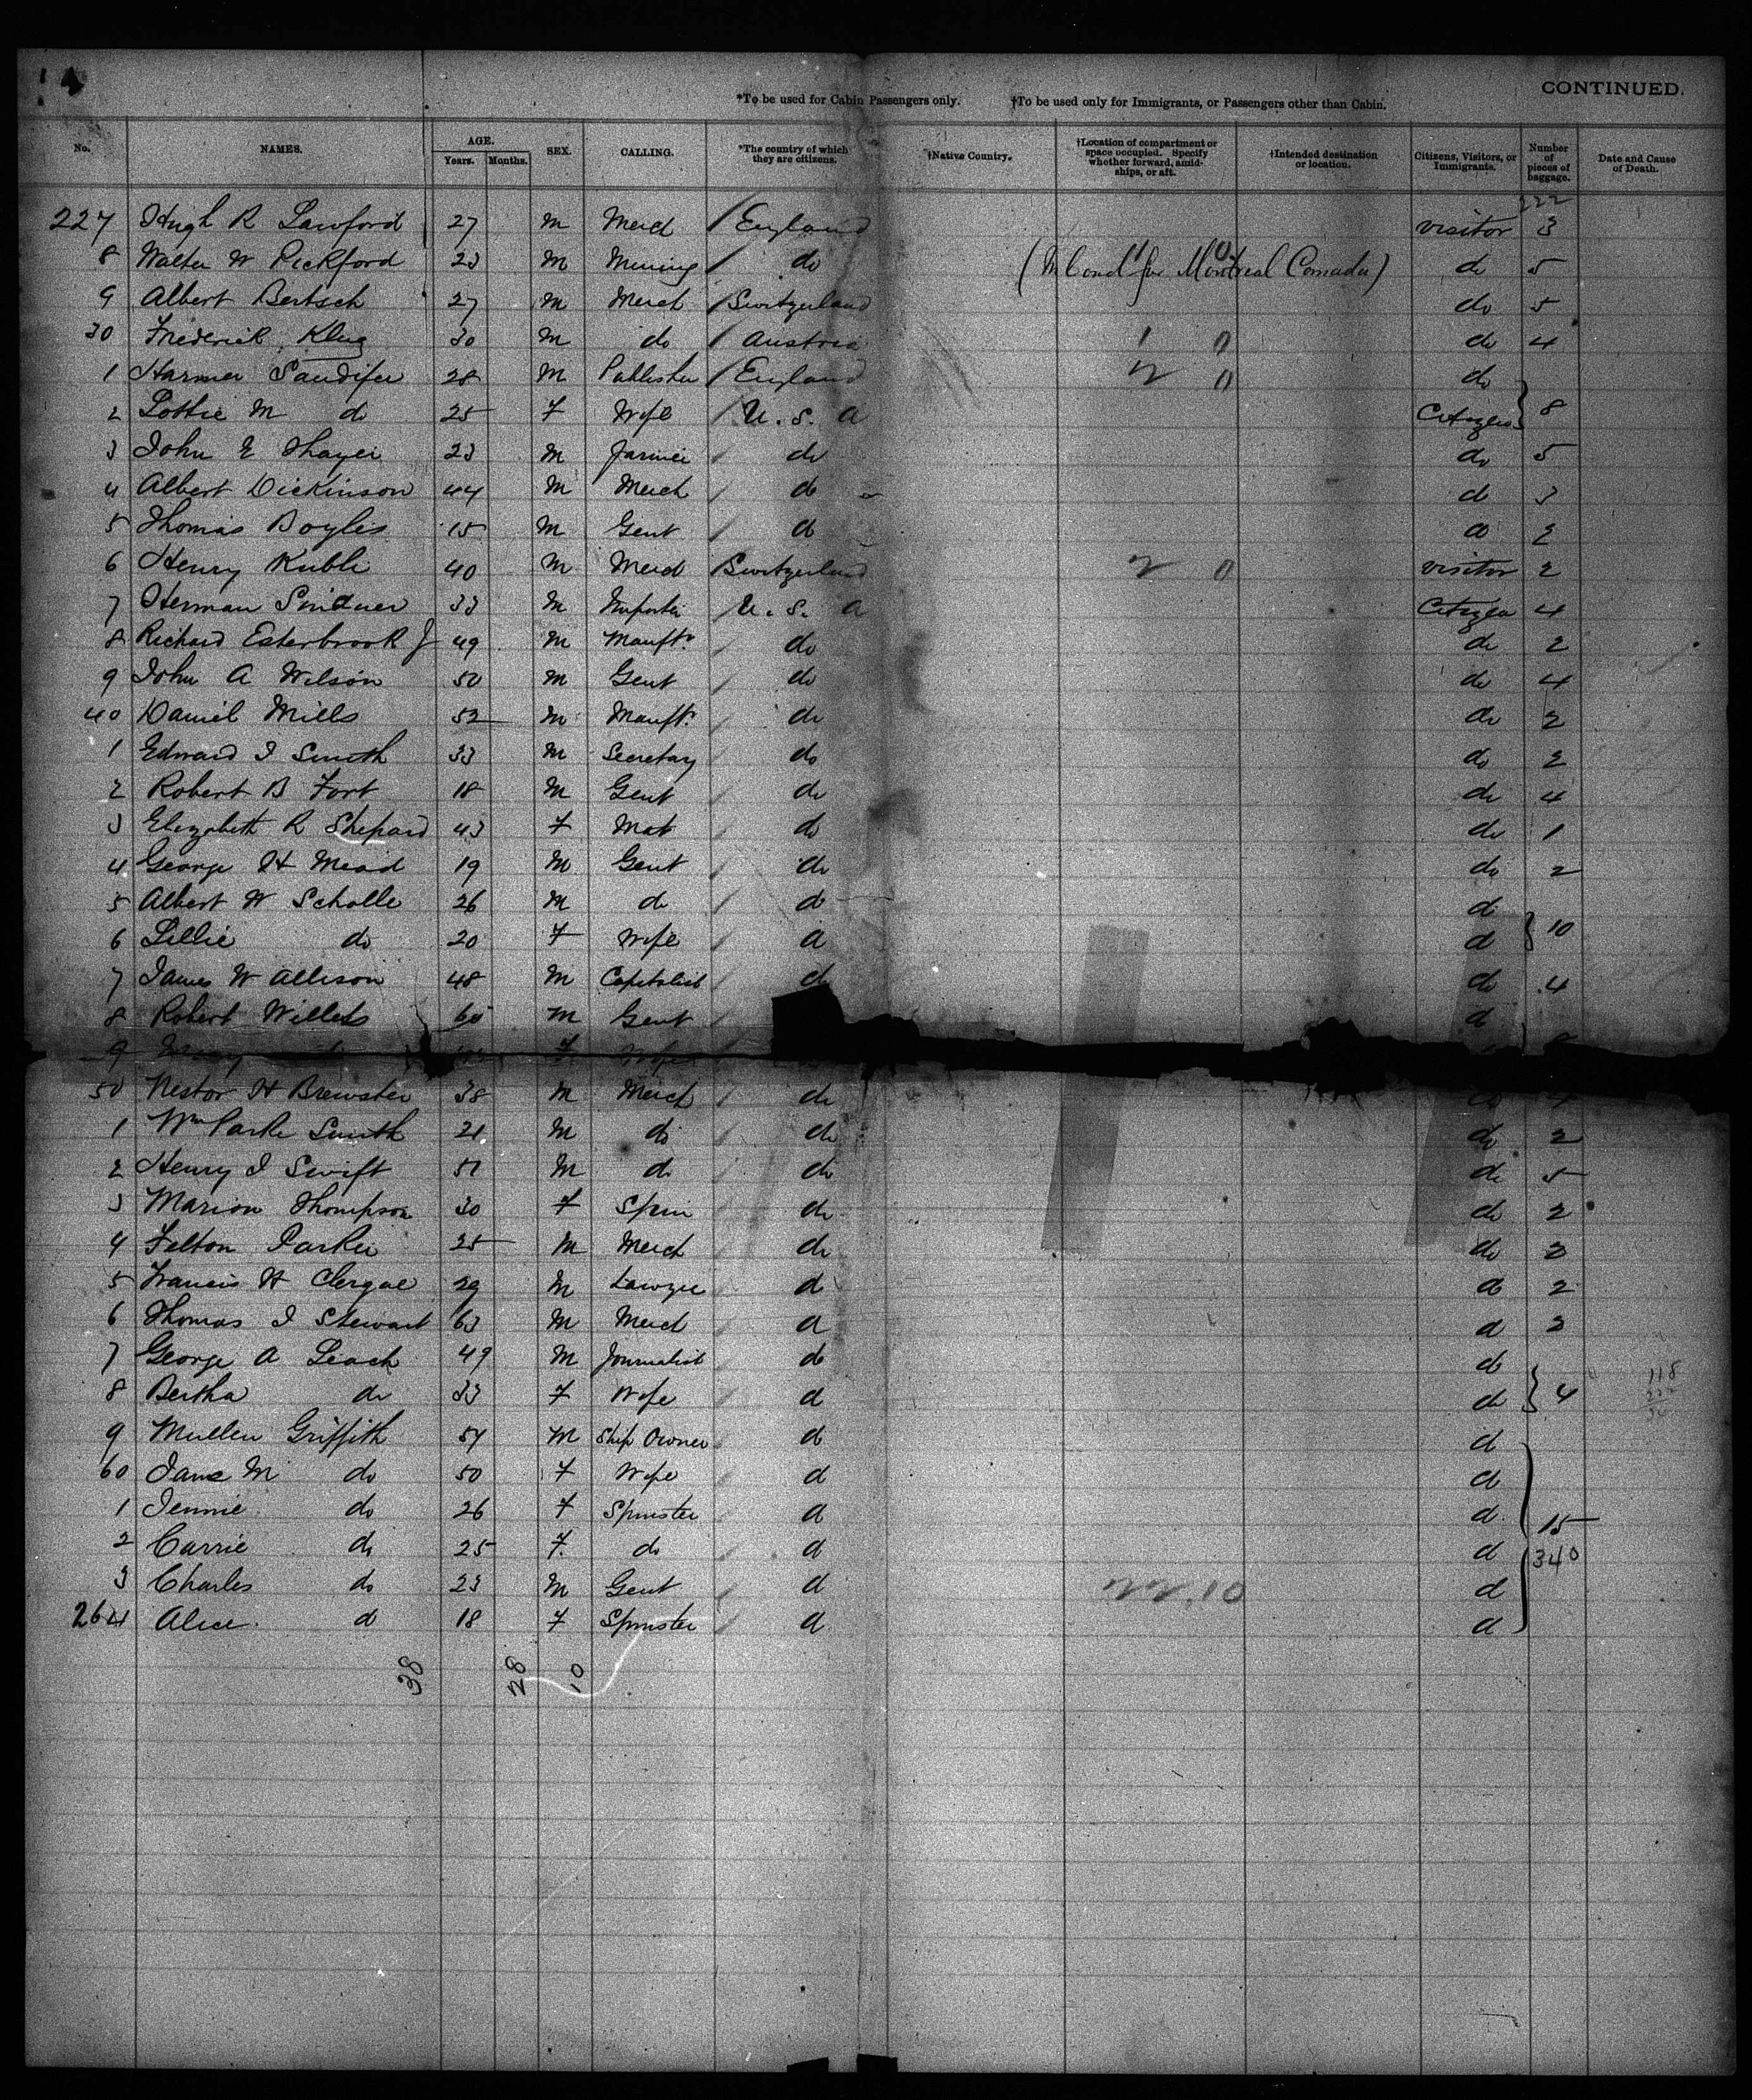 4
CONTINUED.
*To be used for Cabin Passengers only. †To be used only for Immigrants, or Passengers other than Cabin.
No. NAMES. AGE. Years. Months. SEX. CALLING. *The country of which they are citizens. †Native Country. †Location of compartment or space occupied. Specify whether forward, amidships, or aft. †Intended destination or location. Citizens, Visitors, or Immigrants. Number of pieces of baggage. Date and Cause of Death.
222
227 Hugh R Lawford 27 M Merch England visitor 3
8 Walter W Pickford 23 M Mining do (In bond for Montreal Canada) do 5
9 Albert Bertsch 27 M Merch Switzerland do 5
30 Frederick Klug 30 M do Austria 1 0 do 4
1 Harmer Sandifer 28 M Publisher England 2 0 do
2 Lottie M do 25 F Wife U.S. A Citizen 8
3 John E Thayer 23 M Farmer do do 5
4 Albert Dickinson 44 M Merch do do 3
5 Thomas Boyles 15 M Gent do do 2
6 Henry Kubli 40 M Merch Switzerland 2 0 visitor 2
7 Herman 33 M Importer U.S. A Citizen 4
8 Richard Esterbrook Jr 49 M Manftr do do 2
9 John A Wilson 50 M Gent do do 4
40 Daniel Mills 52 M Manftr do do 2
1 Edward J Smith 33 M Secretary do do 2
2 Robert B Fort 18 M Gent do do 4
3 Elizabeth R Shepard 43 F Mat do do 1
4 George H Mead 19 M Gent do do 2
5 Albert W Scholle 26 M do do do
6 Lillie do 20 F Wife do do 10
7 James W Allison 48 M Capitalist do do 4
8 Robert Willets 60 M Gent do
9 F Wife
50 Nestor H Brewster 38 M Merch do do 4
1 Wm Parke Smith 21 M do do do 2
2 Henry J Swift 51 M do do do 5
3 Marion Thompson 30 F Spin do do 2
4 Felton Parker 25 M Merch do do 2
5 Francis H Clergue 29 M Lawyer do do 2
6 Thomas J Stewart 63 M Merch do do 2
7 George A Leach 49 M Journalist do do
8 Bertha do 33 F Wife do do 4
118
222
9 Mullen Griffith 54 M Ship Owner do do
60 Jane M do 50 F Wife do do
1 Jennie do 26 F Spinster do do 15
2 Carrie do 25 F do do do 340
3 Charles do 23 M Gent do do
264 Alice do 18 F Spinster do do
38 28 10